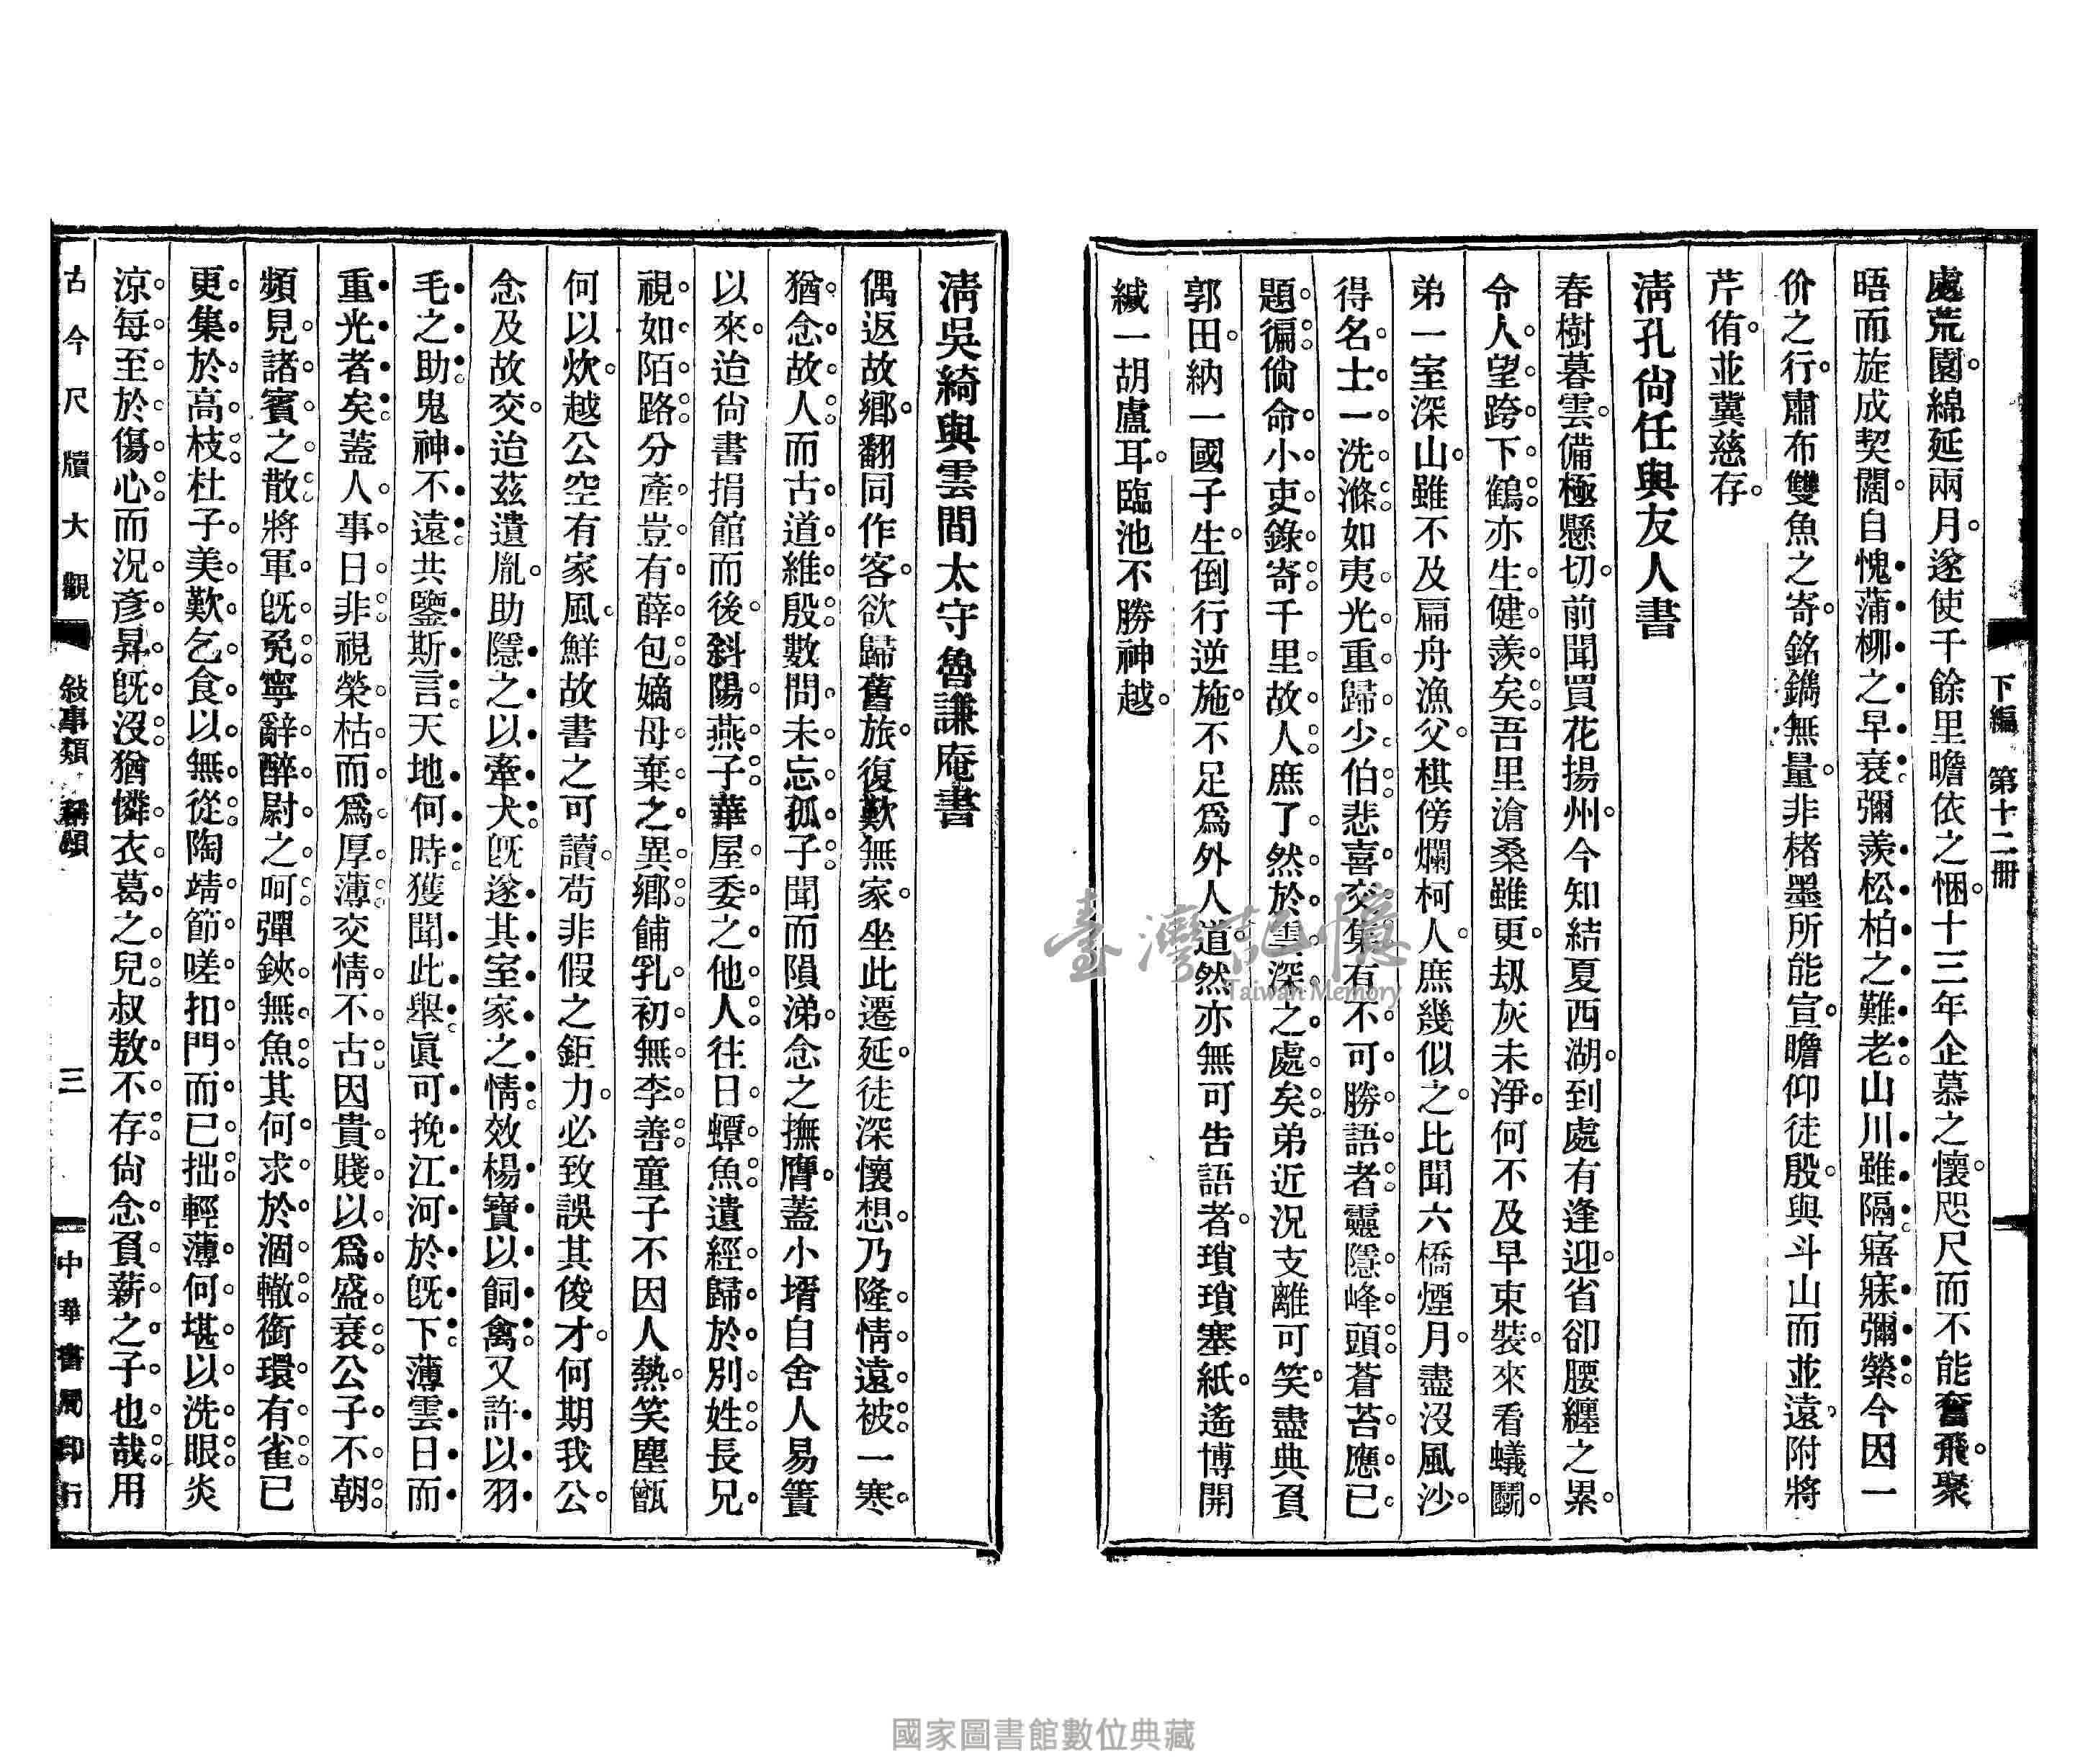 下編　第十二册
處荒園。綿延兩月。遂使千餘里瞻依之悃。十三年企慕之懷。咫尺而不能奮飛。聚
晤而旋成契闊。自愧蒲柳之早衰。彌羨松柏之難老。山川雖隔。寤寐彌縈。今因一
价之行。肅布雙魚之寄。銘鐫無量。非楮墨所能宣。瞻仰徒殷。與斗山而並遠。附將
芹侑。並冀慈存。
淸孔尙任與友人書
春樹暮雲。備極懸切。前聞買花揚州。今知結夏西湖。到處有逢迎。省卻腰纏之累。
令人望跨下鶴。亦生健羨矣。吾里滄桑雖更。刼灰未淨。何不及早束裝。來看蟻鬭。
弟一室深山。雖不及扁舟漁父。棋傍爛柯人。庶幾似之。比聞六橋煙月。盡沒風沙。
得名士一洗滌。如夷光重歸少伯。悲喜交集。有不可勝語者。靈隱峰頭。蒼苔應已
題徧。倘命小吏錄寄千里故人。庶了然於雲深之處矣。弟近況支離可笑。盡典負
郭田。納一國子生。倒行逆施。不足爲外人道。然亦無可告語者。瑣瑣塞紙。遙博開
緘一胡盧耳。臨池不勝神越。
淸吳綺與雲間太守魯謙庵書
偶返故鄕。翻同作客。欲歸舊旅。復歎無家。坐此遷延。徒深懷想。乃隆情遠被。一寒
猶念故人。而古道維殷。數問未忘孤子。聞而隕涕。念之撫膺。蓋小壻自舍人易簀
以來。迨尙書捐館而後。斜陽燕子。華屋委之他人。往日蟫魚。遺經歸於別姓。長兄
視如陌路。分產豈有薛包。嫡母棄之異鄕。餔乳初無李善。童子不因人熱。笑塵甑
何以炊。越公空有家風。鮮故書之可讀。苟非假之鉅力。必致誤其俊才。何期我公。
念及故交。迨茲遺胤。助隱之以牽犬。旣遂其室家之情。效楊寶以飼禽。又許以羽
毛之助。鬼神不遠。共鑒斯言。天地何時。獲聞此舉。眞可挽江河於旣下。薄雲日而
重光者矣。蓋人事日非。視榮枯而爲厚薄。交情不古。因貴賤以爲盛衰。公子不朝。
頻見諸賓之散。將軍旣免。寧辭醉尉之呵。彈鋏無魚。其何求於涸轍。銜環有雀。已
更集於高枝。杜子美歎乞食以無從。陶靖節嗟扣門而已拙。輕薄何堪。以洗眼炎
涼。每至於傷心。而況彥昇旣沒。猶憐衣葛之兒。叔敖不存。尙念負薪之子也哉。用
古今尺牘大觀　敍事類　稱頌　三　中華書局印行
臺灣記憶
Taiwan Memory
國家圖書館數位典藏